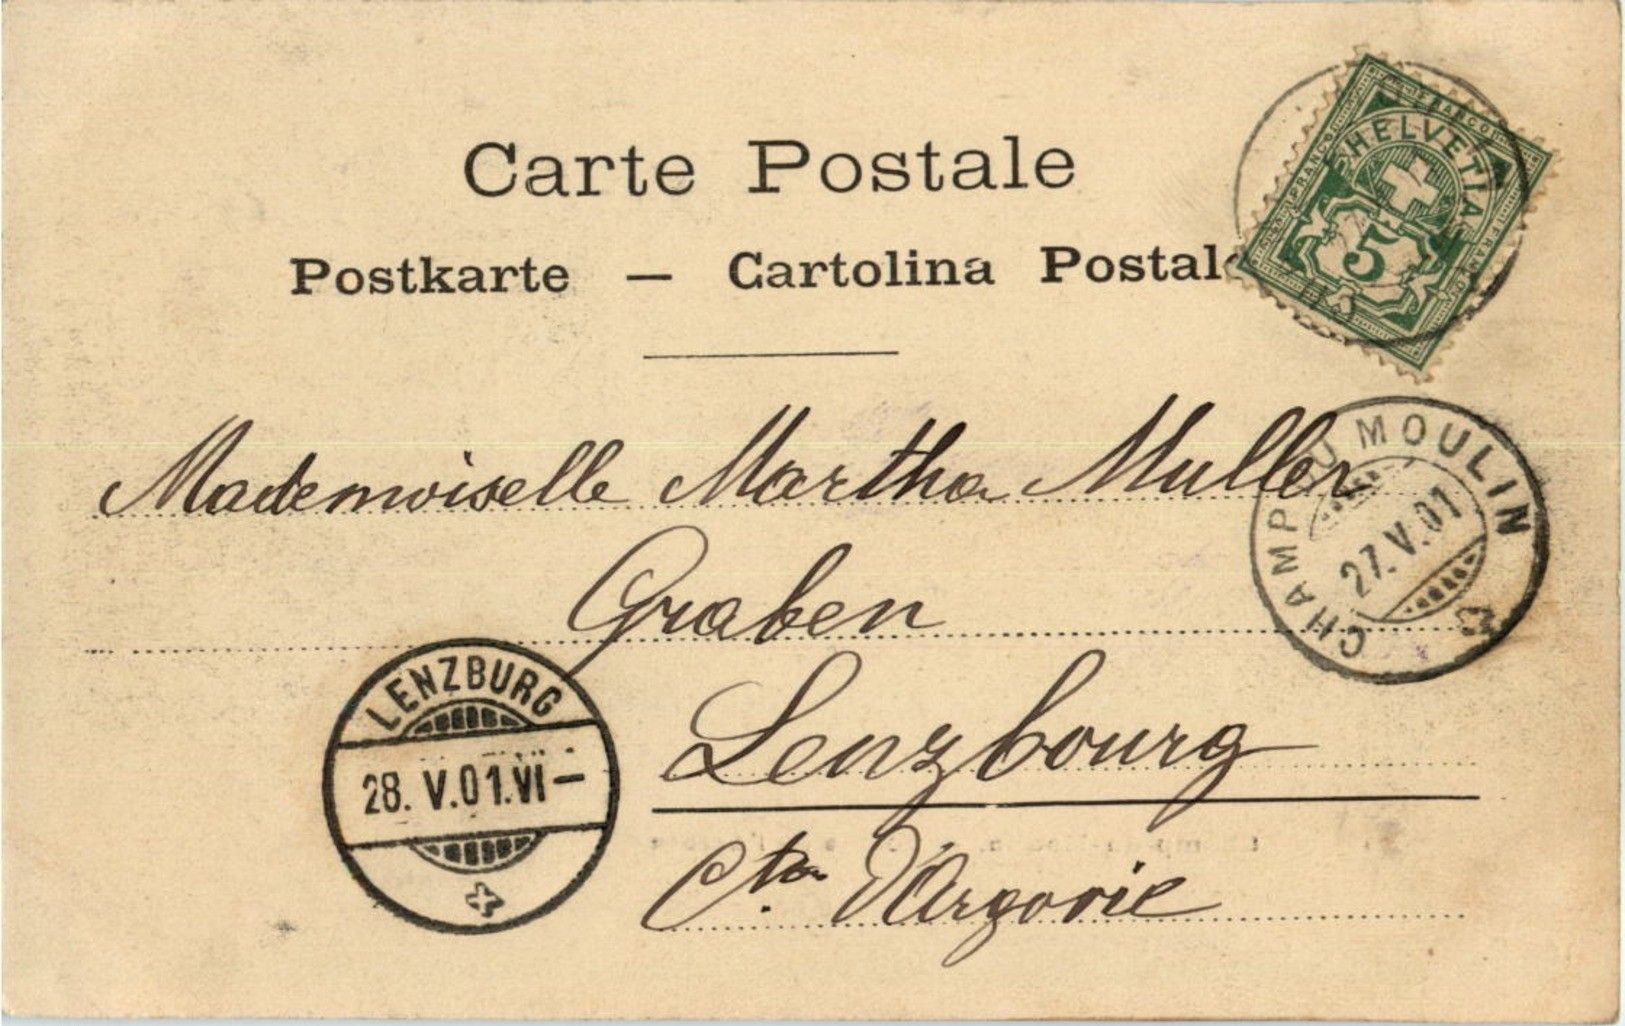 Carte Postale
Postkarte — Cartolina Postale
FRANCO
FRANCO
FRANCO
HELVETIA
5
Mademoiselle Martha Muller
Graben
Lenzbourg
Cton d'Argovie
CHAMP DU MOULIN
27.V.01
LENZBURG
28.V.01.VI–